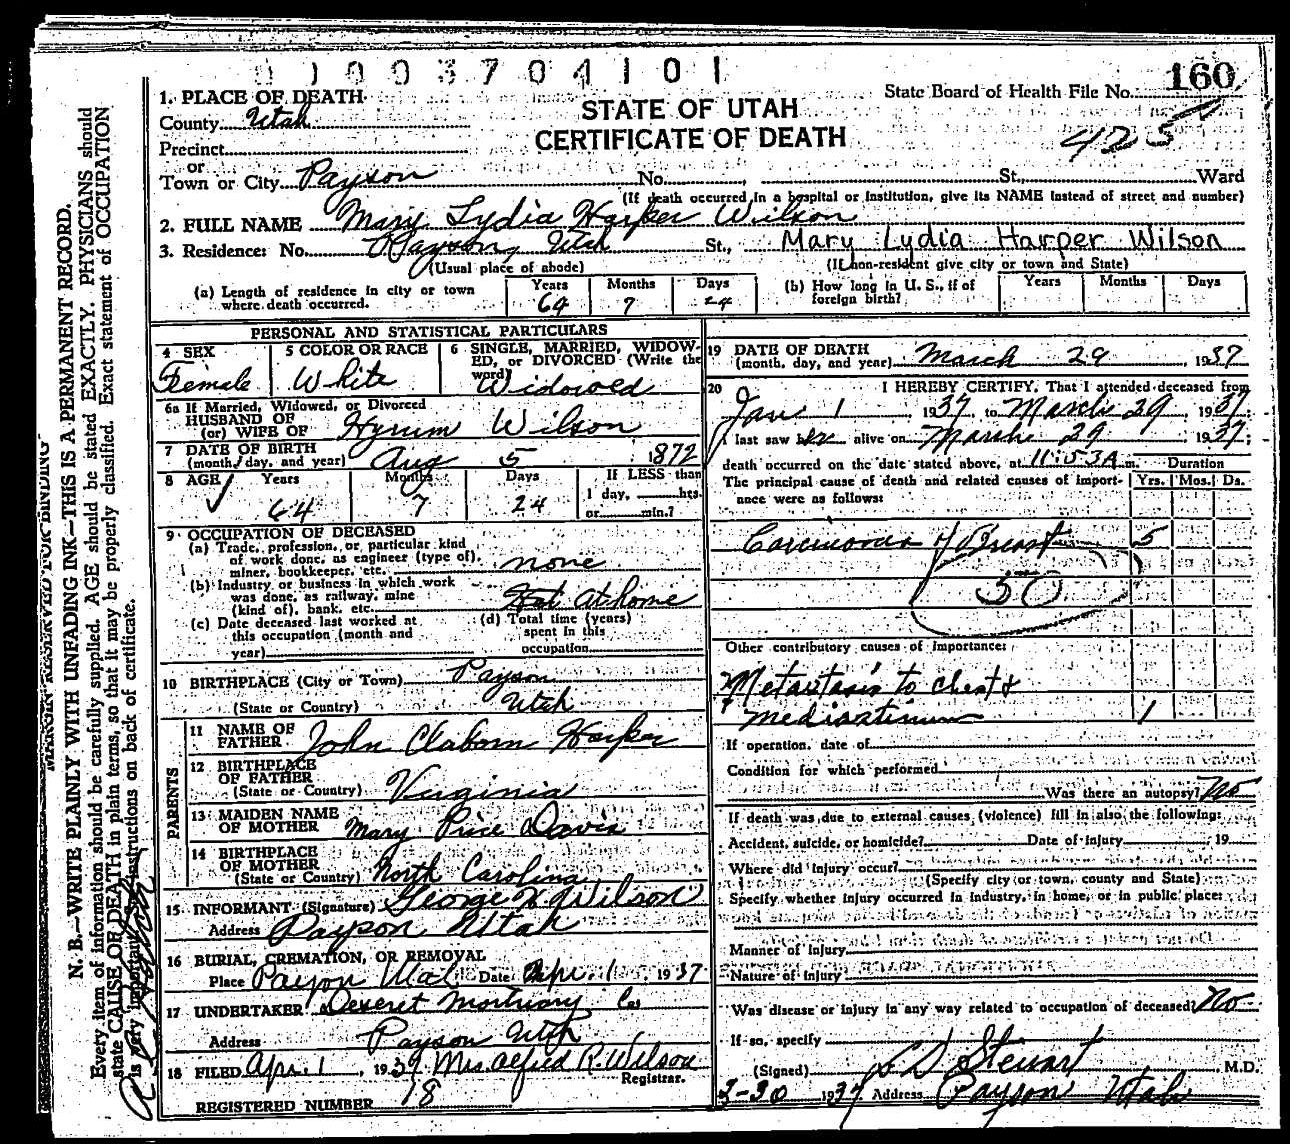 0 1 0 0 3 7 0 4 1 0 1
160
State Board of Health File No.
425
STATE OF UTAH
CERTIFICATE OF DEATH
1. PLACE OF DEATH
County Utah
Precinct
or
Town or City Payson No. St. Ward
(If death occurred in a hospital or institution, give its NAME instead of street and number)
2. FULL NAME Mary Lydia Harper Wilson
3. Residence: No. Payson, Utah St., Mary Lydia Harper Wilson
(Usual place of abode) (If non-resident give city or town and State)
(a) Length of residence in city or town where death occurred. Years 64 Months 7 Days 24
(b) How long in U. S., if of foreign birth? Years Months Days
PERSONAL AND STATISTICAL PARTICULARS
4 SEX Female
5 COLOR OR RACE White
6 SINGLE, MARRIED, WIDOWED, or DIVORCED (Write the word) Widowed
6a If Married, Widowed, or Divorced
HUSBAND OF
(or) WIFE OF Hyrum Wilson
7 DATE OF BIRTH
(month, day, and year) Aug 5 1872
8 AGE Years 64 Months 7 Days 24 If LESS than
1 day, hrs.
or min.?
9 OCCUPATION OF DECEASED
(a) Trade, profession, or particular kind
of work done, as engineer (type of),
miner, bookkeeper, etc. none
(b) Industry or business in which work
was done, as railway, mine
(kind of), bank, etc. At home
(c) Date deceased last worked at
this occupation (month and
year)
(d) Total time (years)
spent in this
occupation
10 BIRTHPLACE (City or Town) Payson
(State or Country) Utah
PARENTS
11 NAME OF
FATHER John Claborn Harper
12 BIRTHPLACE
OF FATHER
(State or Country) Virginia
13 MAIDEN NAME
OF MOTHER Mary Price Davis
14 BIRTHPLACE
OF MOTHER
(State or Country) North Carolina
15 INFORMANT (Signature) George H Wilson
Address Payson Utah
16 BURIAL, CREMATION, OR REMOVAL
Place Payson Utah Date Apr. 1 1937
17 UNDERTAKER Deseret Mortuary Co
Address Payson Utah
18 FILED Apr. 1, 1937 Mrs. Alfred R. Wilson
Registrar.
REGISTERED NUMBER 18
19 DATE OF DEATH
(month, day, and year) March 29, 1937
20 I HEREBY CERTIFY, That I attended deceased from
Jan 1 1937, to March 29, 1937;
I last saw her alive on March 29 1937;
death occurred on the date stated above, at 11:53 A m. Duration
The principal cause of death and related causes of importance were as follows: Yrs. Mos. Ds.
Carcinoma of Breast 5
50
Other contributory causes of importance:
Metastasis to chest &
mediastinum 1
If operation, date of
Condition for which performed
Was there an autopsy? No
If death was due to external causes (violence) fill in also the following:
Accident, suicide, or homicide? Date of injury 19
Where did injury occur?
(Specify city or town, county and State)
Specify whether injury occurred in industry, in home, or in public place:
Manner of injury
Nature of injury
Was disease or injury in any way related to occupation of deceased? No
If so, specify
(Signed) L D Stewart M.D.
3-30 1937 Address Payson Utah
MARGIN RESERVED FOR BINDING
N. B.—WRITE PLAINLY WITH UNFADING INK—THIS IS A PERMANENT RECORD.
Every item of information should be carefully supplied. AGE should be stated EXACTLY. PHYSICIANS should
state CAUSE OF DEATH in plain terms, so that it may be properly classified. Exact statement of OCCUPATION
is very important. See instructions on back of certificate.